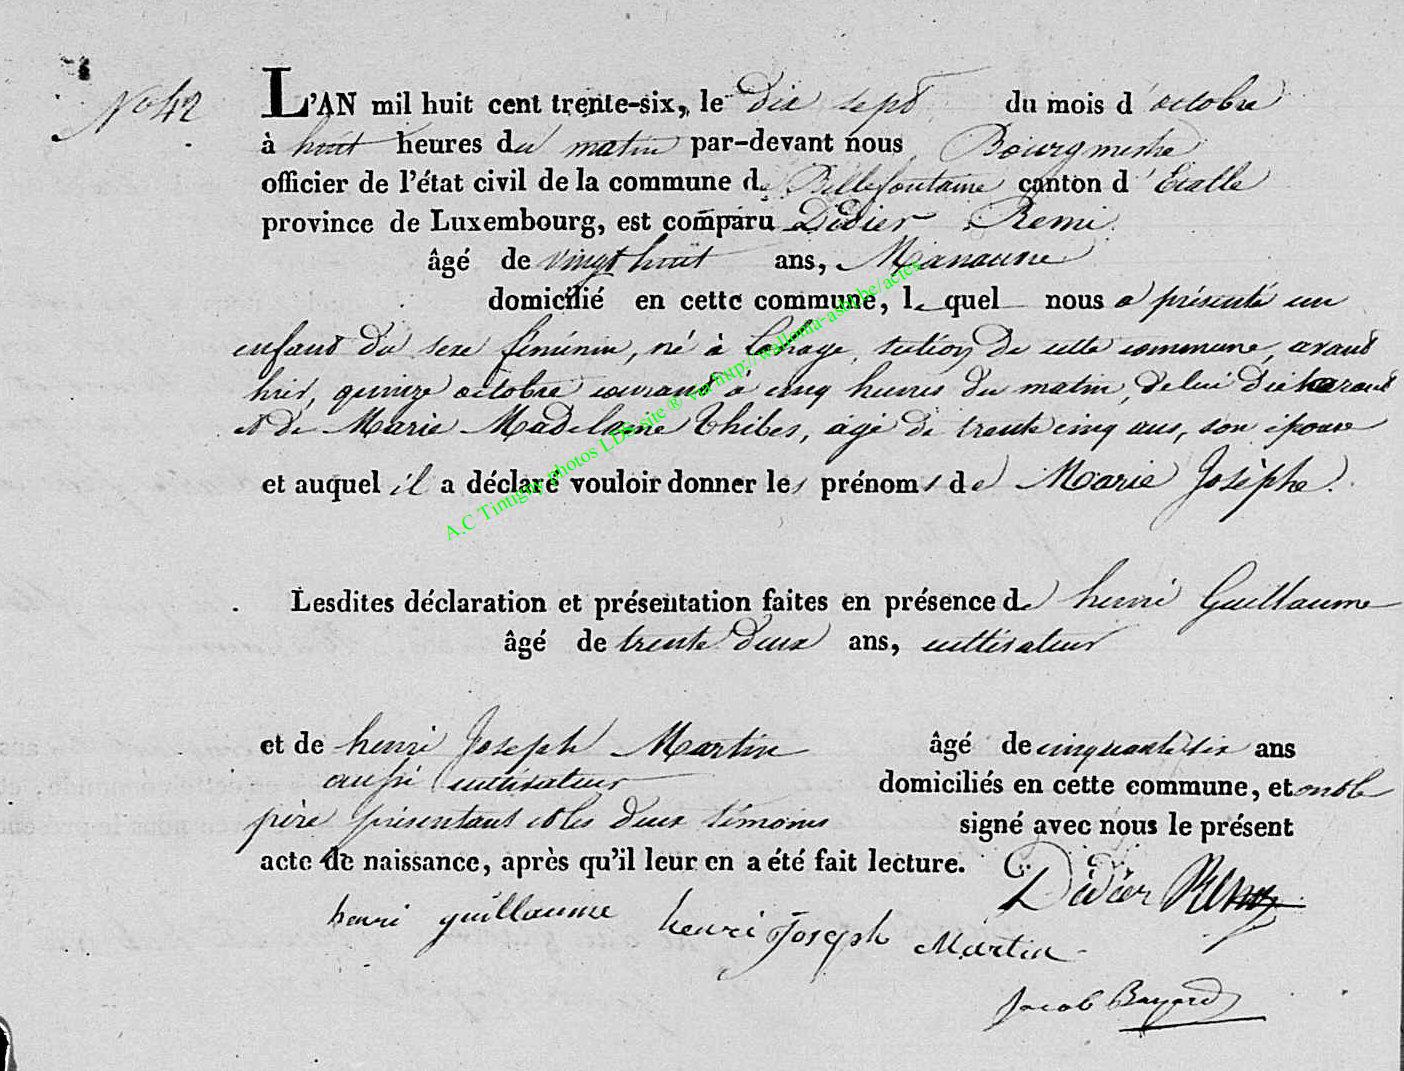 No 42
L'AN mil huit cent trente-six, le dix sept du mois d'octobre
à huit heures du matin par-devant nous Bourgmestre
officier de l'état civil de la commune de Bellefontaine canton d'Etalle
province de Luxembourg, est comparu Didier Remi
âgé de vingt huit ans, Manœuvre
domicilié en cette commune, lequel nous a présenté un
enfant du sexe féminin, né à Lahage, section de cette commune, avant
hier, quinze octobre courant à cinq heures du matin, de lui déclarant
et de Marie Madelaine Thibes, âgé de trente cinq ans, son épouse
et auquel il a déclaré vouloir donner les prénoms de Marie Josèphe.
Lesdites déclaration et présentation faites en présence de henri Guillaume
âgé de trente deux ans, cultivateur
et de henri Joseph Martin âgé de cinquante six ans
aussi cultivateur domiciliés en cette commune, et ont le
père présentant et les deux témoins signé avec nous le présent
acte de naissance, après qu'il leur en a été fait lecture.
Didier Remy
henri guillaume henri Joseph Martin
Jacob Bayard
A.C Tintigny photos LDS site ® via http://wallonia-asbl.be/actes